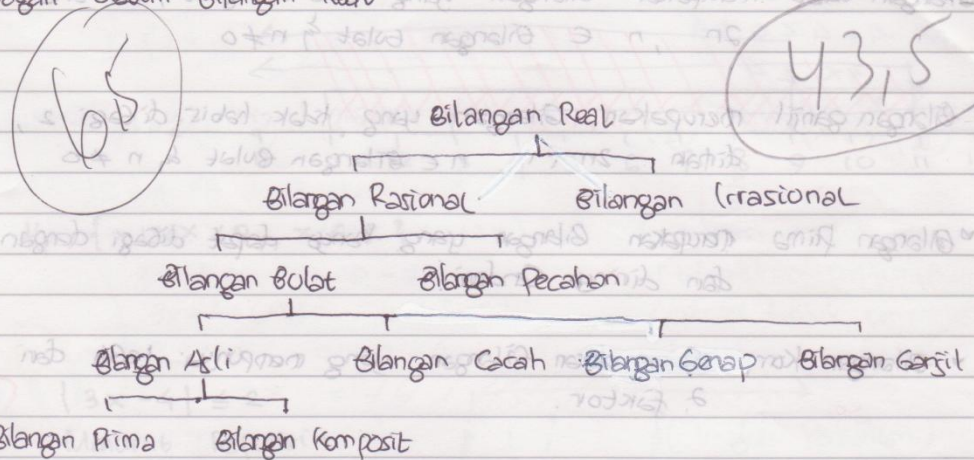 65
43,5
Bilangan Real
Bilangan Rasional Bilangan Irrasional
Bilangan Bulat Bilangan Pecahan
Bilangan Asli Bilangan Cacah Bilangan Genap Bilangan Ganjil
Bilangan Prima Bilangan Komposit